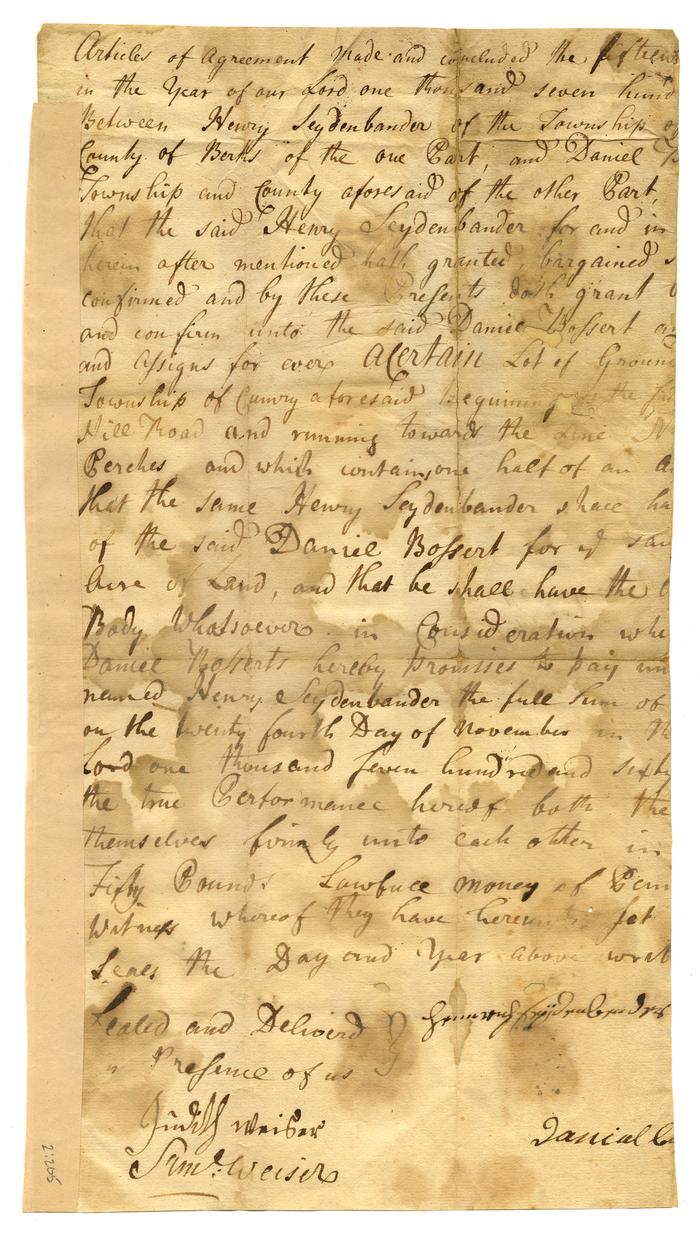 Articles of Agreement Made and concluded the fifteen
in the Year of our Lord one thousand seven hund
Between Henry Seydenbander of the Township of
County of Berks of the one Part, and Daniel
Township and County aforesaid of the other Part,
that the said Henry Seydenbander for and in
herein after mentioned hath granted, bargained s
confirmed and by these Presents doth grant
and confirm unto the said Daniel Bossert
and Assigns for ever A Certain Lot of Ground
Township of Cumry aforesaid Beguining the
Hill Road and running towards the Line
Perches and which contains one half of an A
that the same Henry Seydenbander shall ha
of the said Daniel Bossert for sd
Acre of Land, and that he shall have the
Body Whatsoever in Consideration whe
Daniel Bosserts hereby Promises to pay un
named Henry Seydenbander the full Sum of
on the twenty fourth Day of November in th
Lord one thousand seven hundred and sixty
the true Performance hereof both the
themselves firmly unto each other in
Fifty Pounds Lawfull money of Penn
Witness whereof they have hereunto set
Seales the Day and Year above writ
Sealed and Deliverd
in Presence of us
Henrich Seydenbender
Judith Weiser
Daniael
Saml: Weiser
2:206